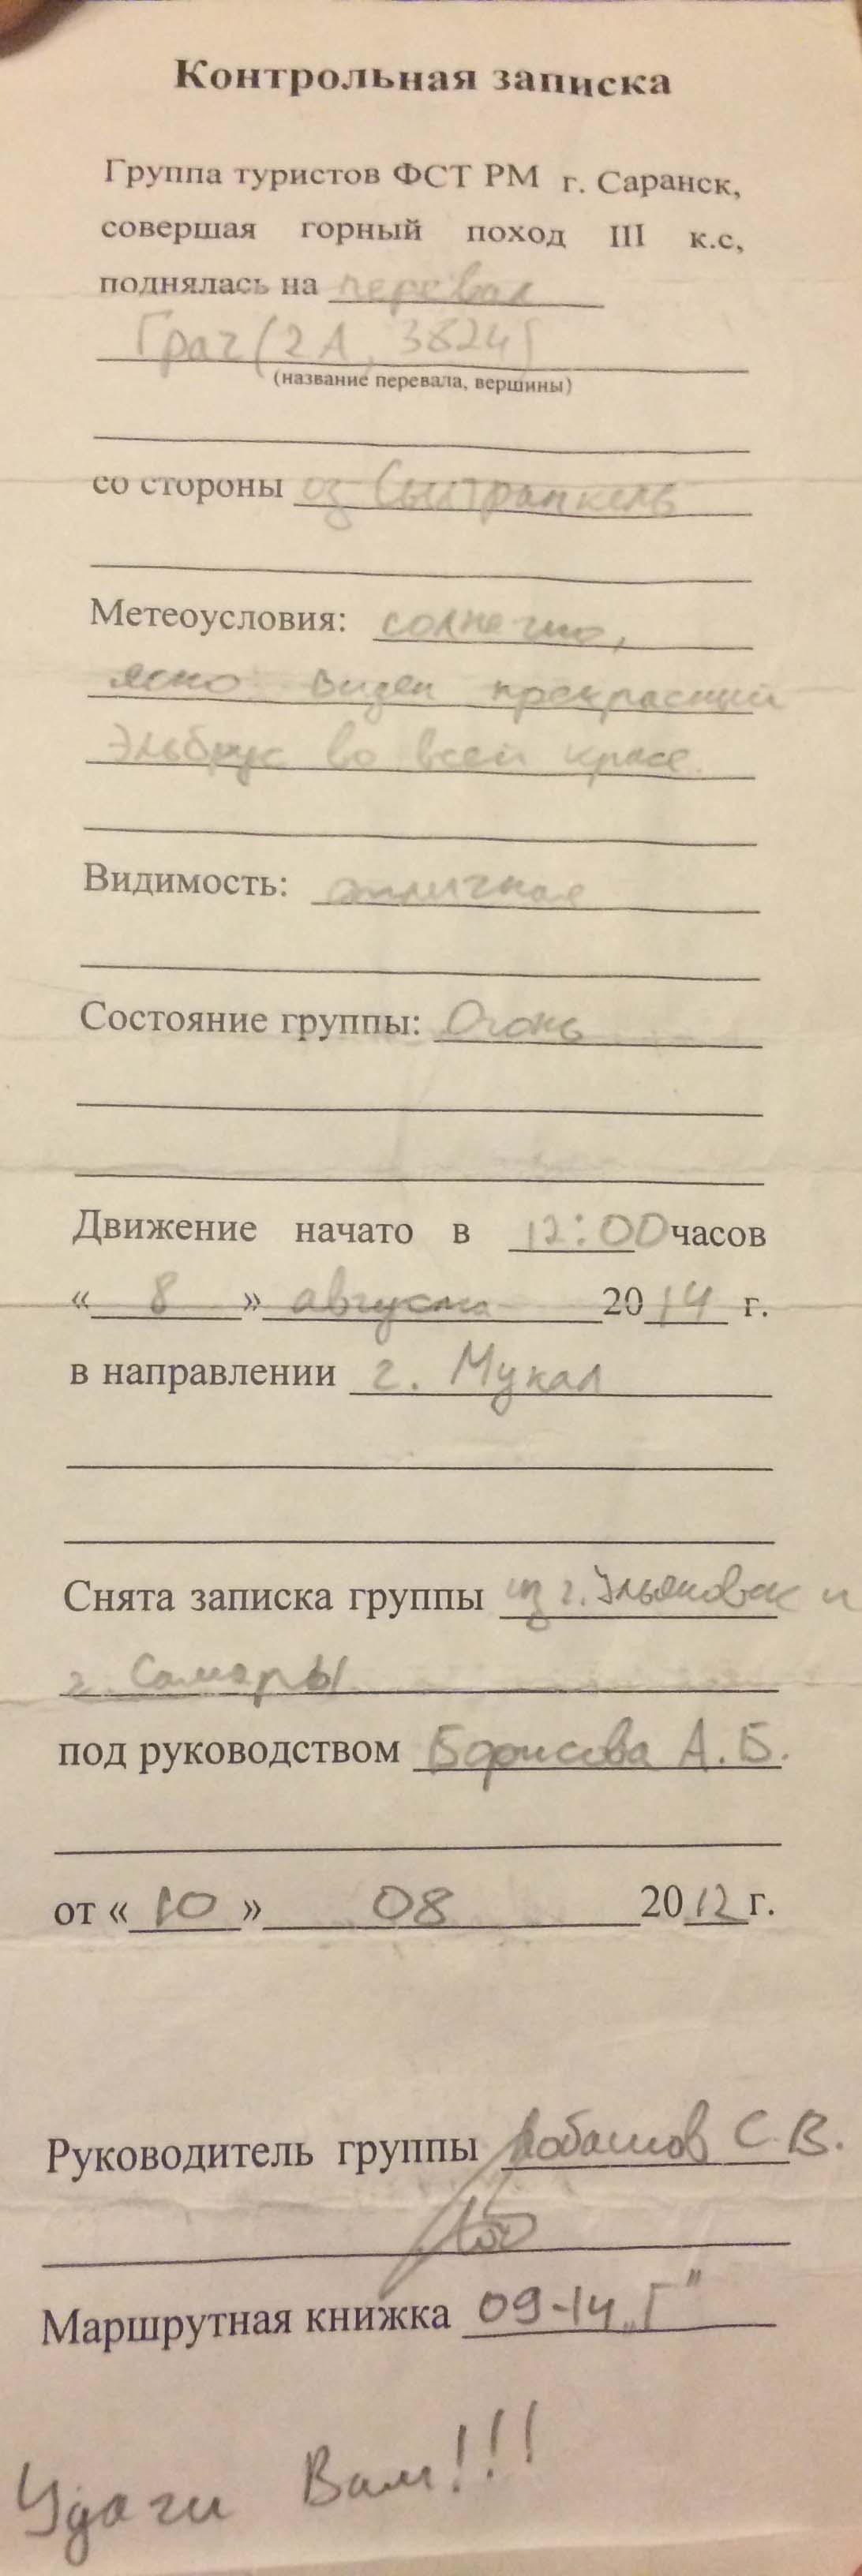 Контрольная записка
Группа туристов ФСТ РМ г. Саранск,
совершая горный поход III к.с,
поднялась на перевал
Грач (2А, 3824)
(название перевала, вершины)
со стороны оз Сылтранкель
Метеоусловия: солнечно,
ясно виден прекрасный
Эльбрус во всей красе.
Видимость: отличная
Состояние группы: Огонь
Движение начато в 12:00 часов
« 8 » августа 2014 г.
в направлении г. Мукал
Снята записка группы из г. Ульяновск и
г. Самары
под руководством Борисова А.Б.
от « 10 » 08 2012 г.
Руководитель группы Лобашов С.В.
Маршрутная книжка 09-14 „Г"
Удачи Вам!!!